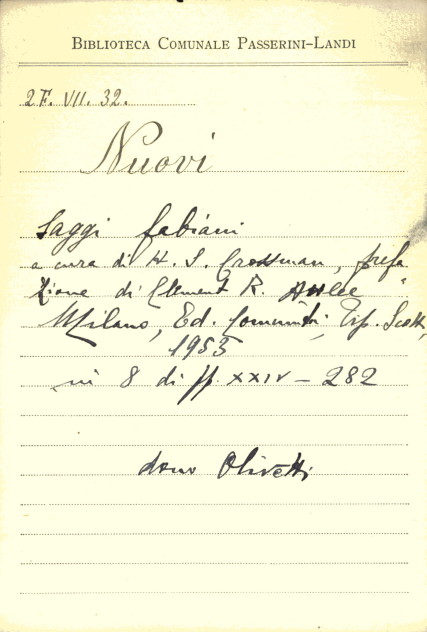 BIBLIOTECA COMUNALE PASSERINI-LANDI
2F. VII. 32.
Nuovi
saggi fabiani
a cura di H. S. Crossman, prefa
zione di Clement R. Attlee
Milano, Ed. Comunità, Tip. Scotti,
1953
in 8 di pp. XXIV - 282
dono Olivetti